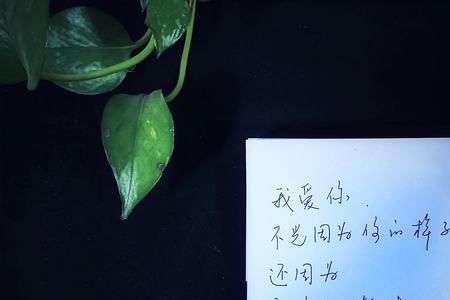 我爱你.
不光因为你的样子
还因为